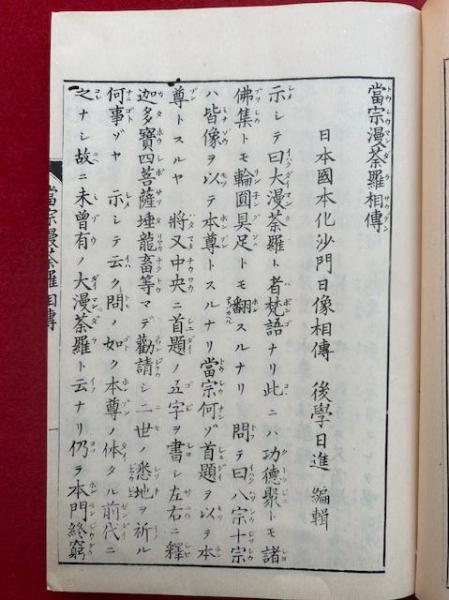 當宗漫荼羅相傳
日本國本化沙門日像相傳 後學日進 編輯
示シテ曰大漫荼羅ト者梵語ナリ此ニハ功德聚トモ諸
佛集トモ輪圓具足トモ翻スルナリ 問テ曰八宗十宗
ハ皆像ヲ以テ本尊トスルナリ當宗何ゾ首題ヲ以テ本
尊トスルヤ 將又中央ニ首題ノ五字ヲ書シ左右ニ釋
迦多寶四菩薩埀龍畜等マデ勸請シ二世ノ悉地ヲ祈ル
何事ゾヤ 示シテ云ク問ノ如ク本尊ノ体タル前代ニ
之ナシ故ニ未曾有ノ大漫荼羅ト云ナリ仍ヲ本門終窮
當宗漫荼羅相傳 一